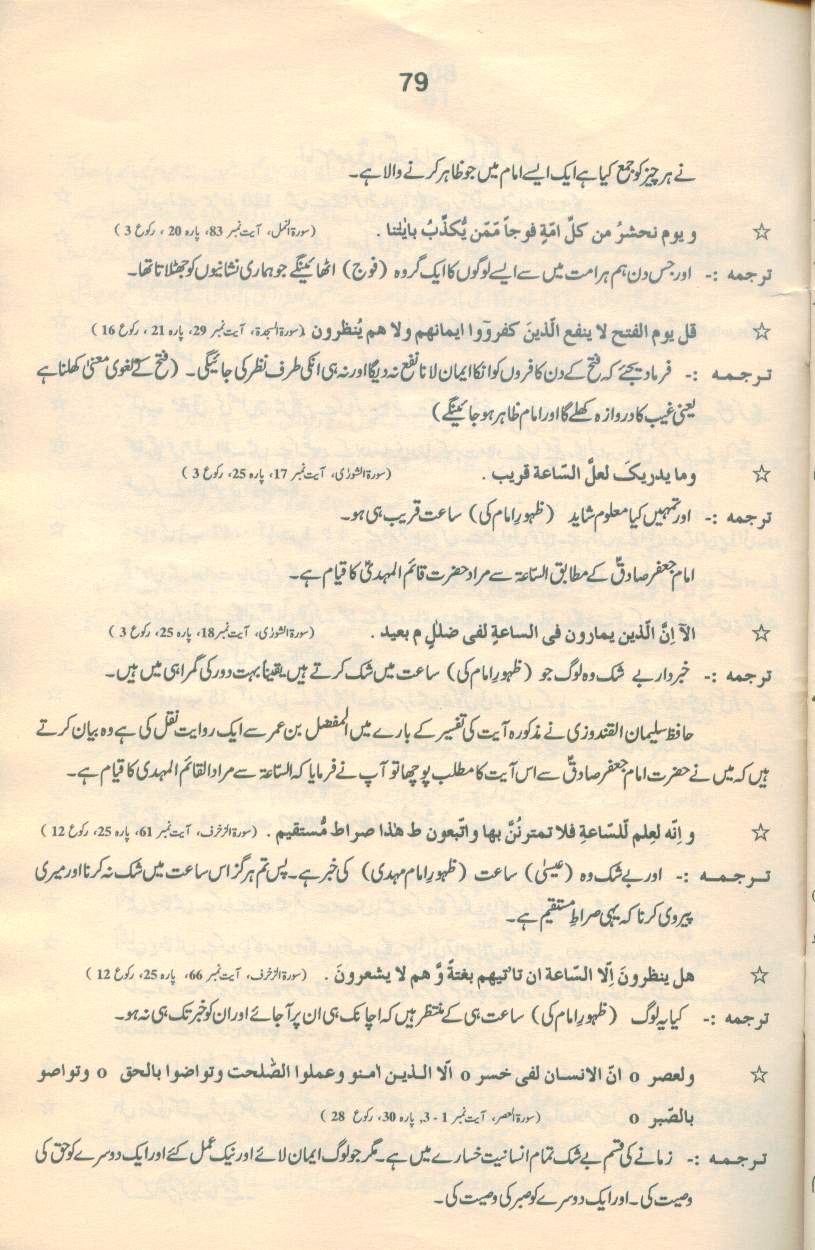 79
نے ہر چیز کو جمع کیا ہے ایک ایسے امام میں جو ظاہر کرنے والا ہے۔
☆ و یوم نحشرُ من کلِّ امّةٍ فوجاً مّمّن یُّکذّبُ بایٰتنا . (سورۃ النمل، آیت نمبر 83، پارہ 20 ، رکوع 3 )
ترجمہ :- اور جس دن ہم ہر امت میں سے ایسے لوگوں کا ایک گروہ (فوج) اٹھائینگے جو ہماری نشانیوں کو جھٹلاتا تھا۔
☆ قل یوم الفتح لا ینفع الّذینَ کفروٓوا ایمانهم ولا هم یُنظرون .(سورۃ السجدۃ، آیت نمبر 29، پارہ 21 ، رکوع 16 )
ترجمہ :- فرمادیجئے کہ فتح کے دن کافروں کو انکا ایمان لانا نفع نہ دیگا اور نہ ہی انکی طرف نظر کی جائیگی۔ (فتح کے لغوی معنیٰ کھلنا ہے
یعنی غیب کا دروازہ کھلے گا اور امام ظاہر ہو جائینگے)
☆ وما یدریک لعلَّ السّاعة قریب . (سورۃ الشورٰی، آیت نمبر 17، پارہ 25، رکوع 3 )
ترجمہ :- اور تمہیں کیا معلوم شاید (ظہورِ امام کی) ساعت قریب ہی ہو۔
امام جعفر صادقؑ کے مطابق السّاعۃ سے مراد حضرت قائم المہدیؑ کا قیام ہے۔
☆ الآ اِنَّ الّذین یمارون فی الساعةِ لفی ضللٍ م بعید . (سورۃ الشورٰی، آیت نمبر 18، پارہ 25، رکوع 3 )
ترجمہ :- خبردار بے شک وہ لوگ جو (ظہورِ امام کی) ساعت میں شک کرتے ہیں یقیناً بہت دور کی گمراہی میں ہیں۔
حافظ سلیمان القندوزی نے مذکورہ آیت کی تفسیر کے بارے میں المفضل بن عمر سے ایک روایت نقل کی ہے وہ بیان کرتے
ہیں کہ میں نے حضرت امام جعفر صادقؑ سے اس آیت کا مطلب پوچھا تو آپ نے فرمایا کہ السّاعۃ سے مراد القائم المہدی کا قیام ہے۔
☆ و اِنّه لعِلم لّلسّاعةِ فلا تمترنَّ بها واتّبعون ط هٰذا صراط مُّستقیم . (سورۃ الزخرف، آیت نمبر 61، پارہ 25، رکوع 12 )
ترجمہ :- اور بے شک وہ (عیسیٰ) ساعت (ظہورِ امام مہدی) کی خبر ہے۔ پس تم ہرگز اس ساعت میں شک نہ کرنا اور میری
پیروی کرنا کہ یہی صراطِ مستقیم ہے۔
☆ هل ینظرونَ اِلّا السّاعة ان تاتیهم بغتةً وَّ هم لا یشعرونَ . (سورۃ الزخرف، آیت نمبر 66، پارہ 25، رکوع 12 )
ترجمہ :- کیا یہ لوگ (ظہورِ امام کی) ساعت ہی کے منتظر ہیں کہ اچانک ہی ان پر آجائے اور ان کو خبر تک ہی نہ ہو۔
☆ ولعصر o انّ الانسان لفی خسر o الّا الذین امنو وعملوا الصّٰلحت وتواصوا بالحق o وتواصو
بالصّبر o (سورۃ العصر، آیت نمبر 1-3, پارہ 30، رکوع 28 )
ترجمہ :- زمانے کی قسم بے شک تمام انسانیت خسارے میں ہے۔ مگر جو لوگ ایمان لائے اور نیک عمل کئے اور ایک دوسرے کو حق کی
وصیت کی۔ اور ایک دوسرے کو صبر کی وصیت کی۔